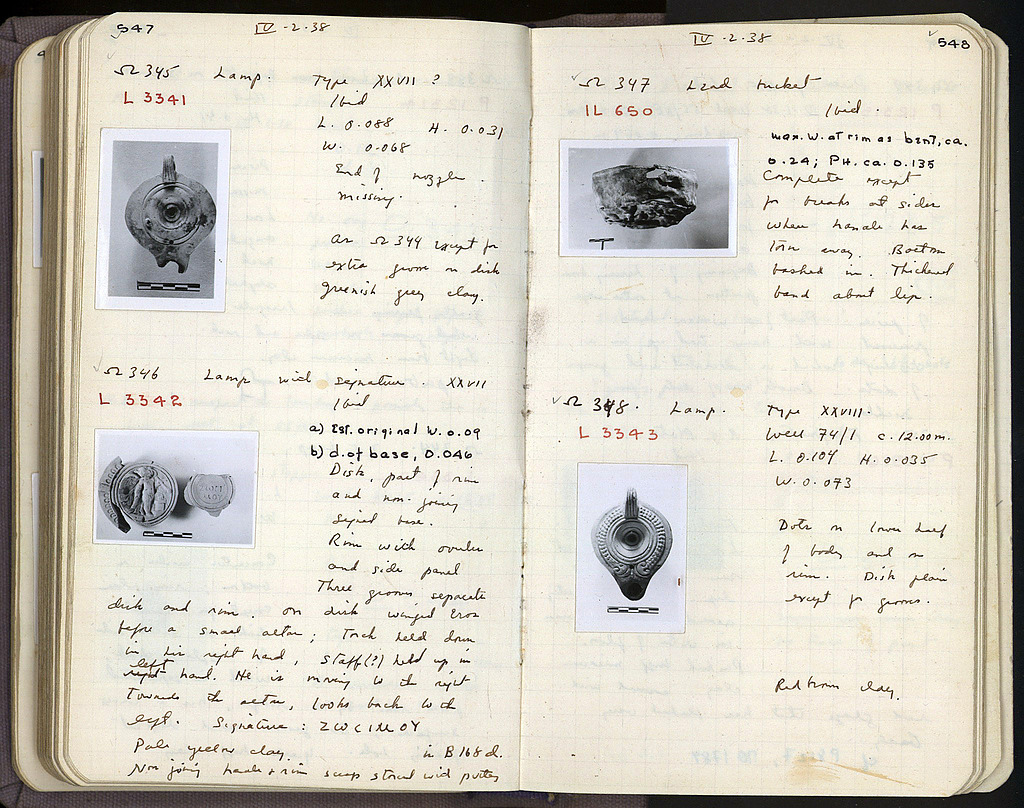 547
IV - 2 - 38
Ω 345 Lamp. Type XXVII ?
L 3341
Ibid
L. 0.088 H. 0.031
W. 0.068
End of nozzle
missing.
As Ω 344 except for
extra groove on disk
Greenish grey clay.
Ω 346 Lamp with signature XXVII
L 3342
Ibid
a) Est. original W. 0.09
b) d. of base, 0.046
Disk, part of rim
and non-joining
signed base.
Rim with ovules
and side panel
Three grooves separate
disk and rim. On disk winged Eros
before a small altar; Torch held down
in his right hand, staff(?) held up in
left
right hand. He is moving to the right
towards the altar, looks back to the
left. Signature: ZWCIMOY
Pale yellow clay. in B 168 d.
Non joining handle + rim scrap stored with
548
IV - 2 - 38
Ω 347 Lead bucket
IL 650
Ibid.
max. W. at rim as bent, ca.
0.24; PH. ca. 0.135
Complete except
for breaks at sides
where handle has
torn away. Bottom
bashed in. Thickened
band about lip.
Ω 348. Lamp. Type XXVIII.
L 3343
Well 74/1 c. 12.00m.
L. 0.104 H. 0.035
W. 0.073
Dots on lower half
of body and on
rim. Disk plain
except for grooves.
Red brown clay.